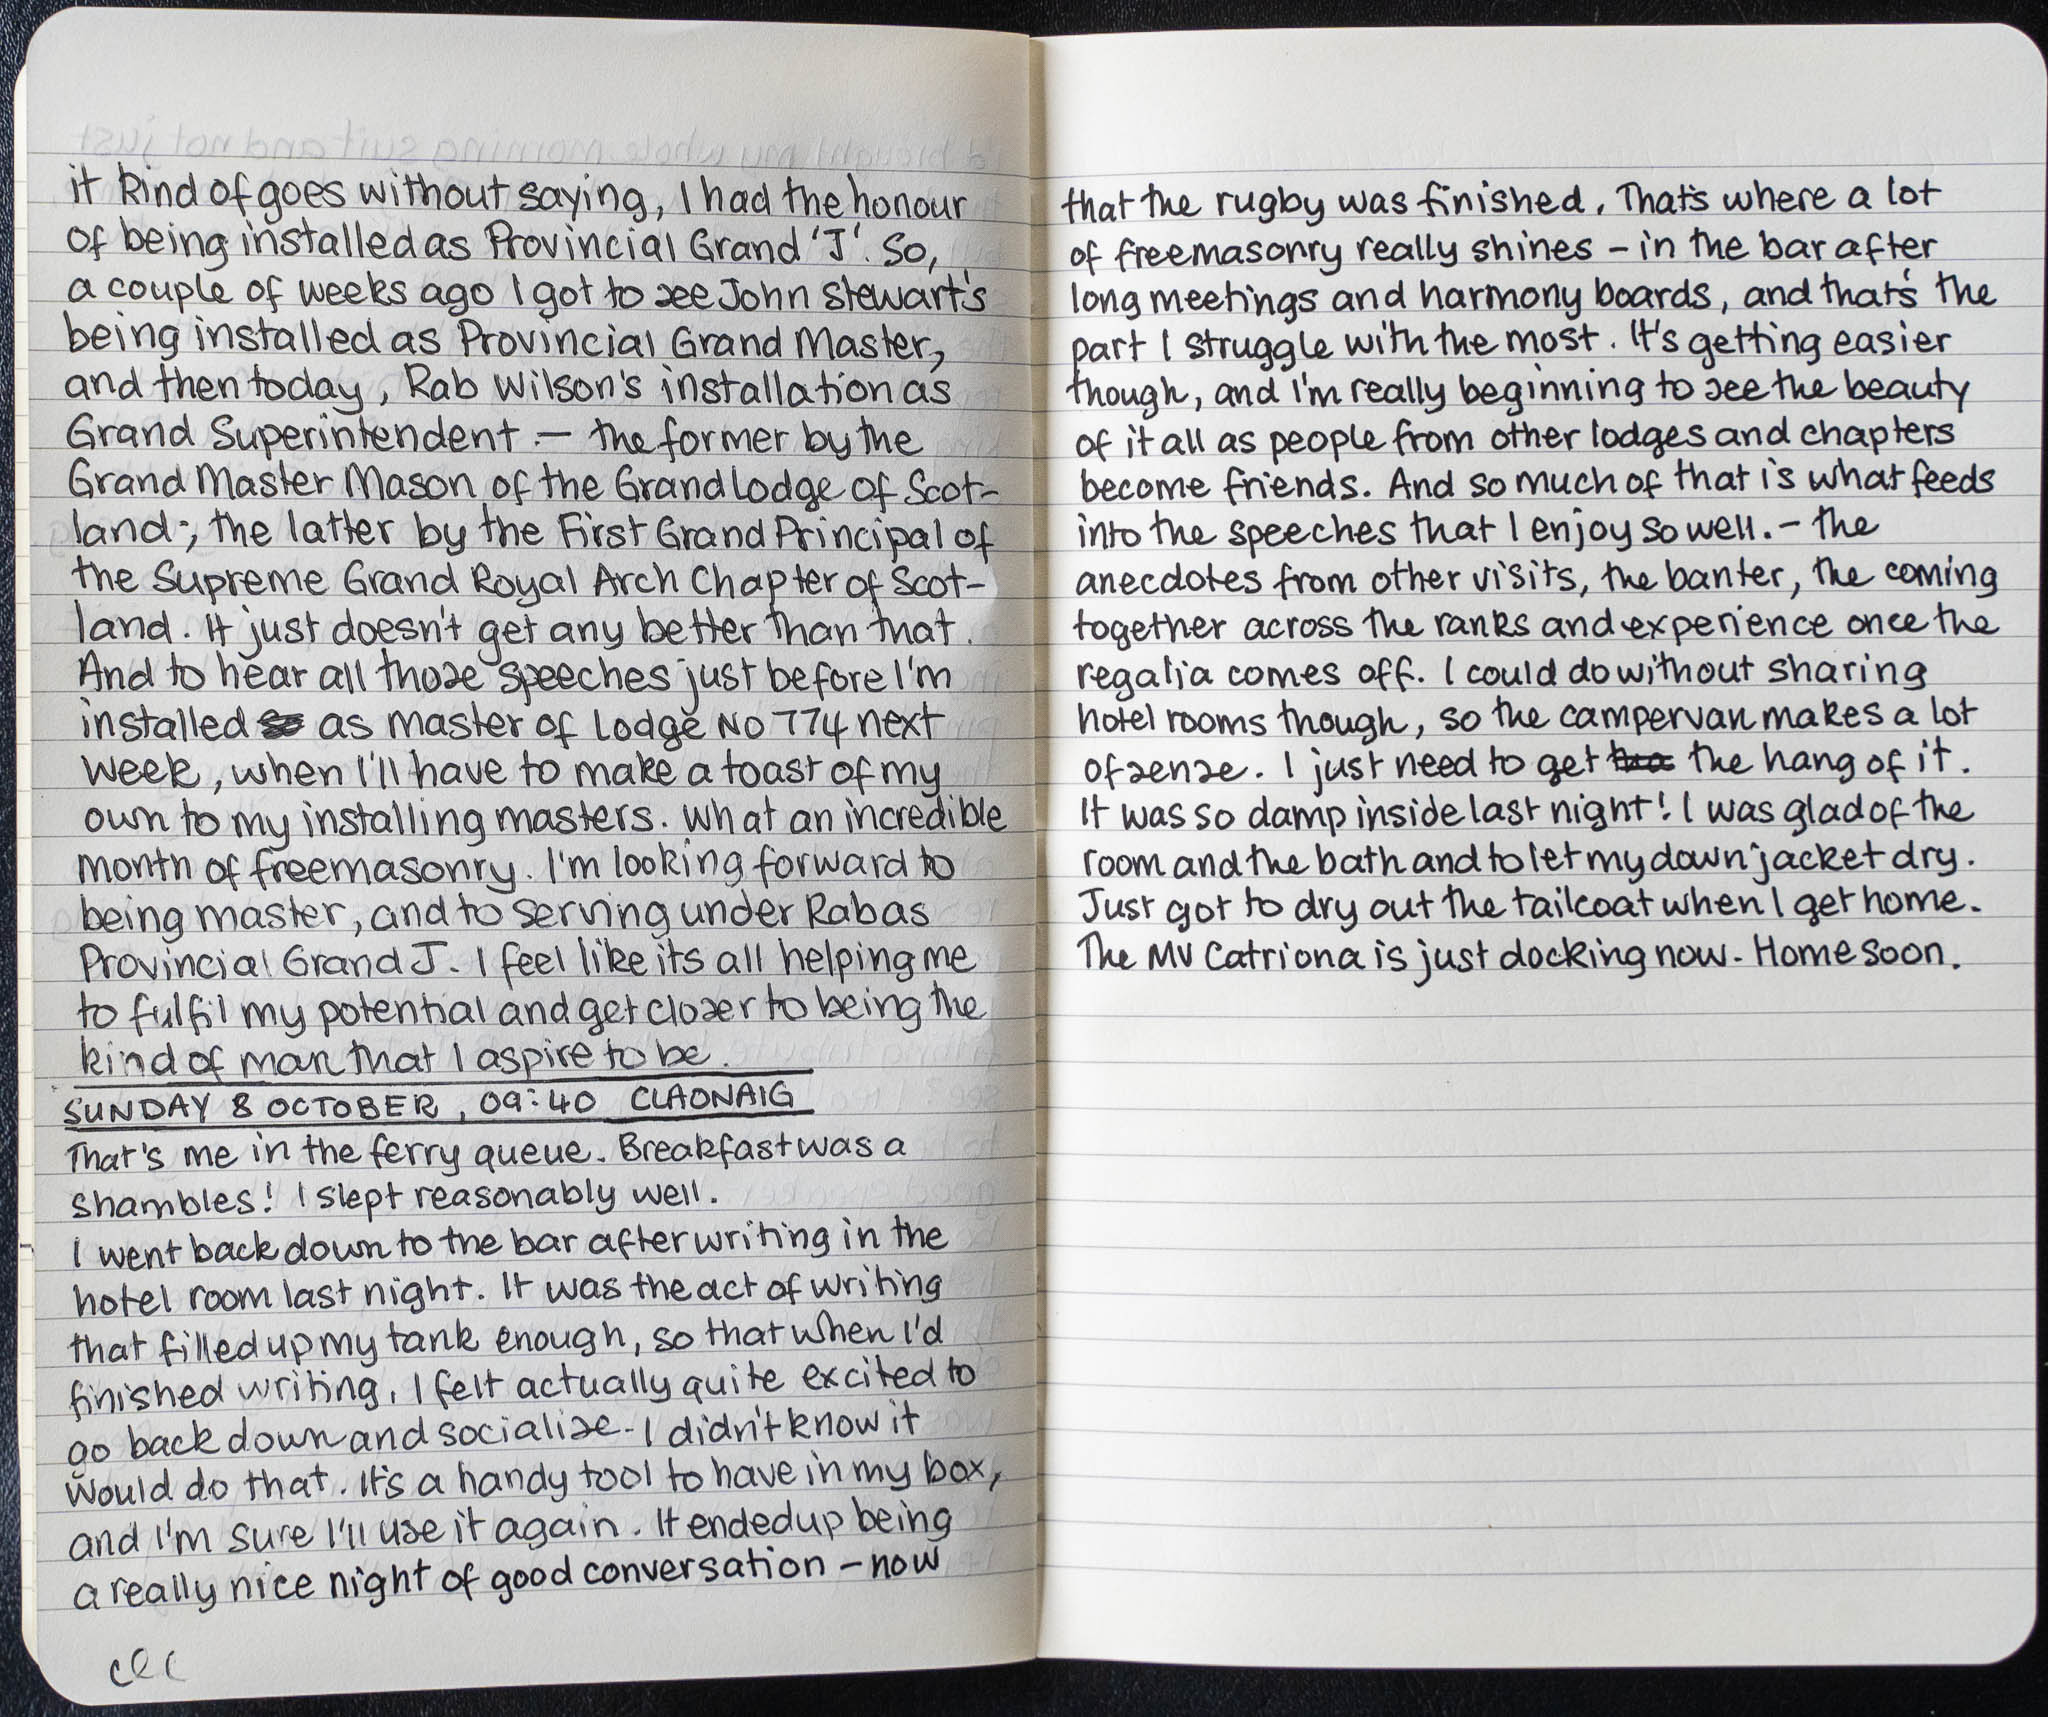 it kind of goes without saying, I had the honour
of being installed as Provincial Grand 'J'. So,
a couple of weeks ago I got to see John Stewart's
being installed as Provincial Grand Master,
and then today, Rab Wilson's installation as
Grand Superintendent. – the former by the
Grand Master Mason of the Grand Lodge of Scot-
land; the latter by the First Grand Principal of
the Supreme Grand Royal Arch Chapter of Scot-
land. It just doesn't get any better than that.
And to hear all those speeches just before I'm
installed as master of Lodge No 774 next
week, when I'll have to make a toast of my
own to my installing masters. What an incredible
month of freemasonry. I'm looking forward to
being master, and to serving under Rab as
Provincial Grand J. I feel like its all helping me
to fulfil my potential and get closer to being the
kind of man that I aspire to be.
SUNDAY 8 OCTOBER, 09:40 CLAONAIG
That's me in the ferry queue. Breakfast was a
shambles! I slept reasonably well.
I went back down to the bar after writing in the
hotel room last night. It was the act of writing
that filled up my tank enough, so that when I'd
finished writing, I felt actually quite excited to
go back down and socialise. I didn't know it
would do that. It's a handy tool to have in my box,
and I'm sure I'll use it again. It ended up being
a really nice night of good conversation – now
that the rugby was finished. That's where a lot
of freemasonry really shines – in the bar after
long meetings and harmony boards, and that's the
part I struggle with the most. It's getting easier
though, and I'm really beginning to see the beauty
of it all as people from other lodges and chapters
become friends. And so much of that is what feeds
into the speeches that I enjoy so well. – the
anecdotes from other visits, the banter, the coming
together across the ranks and experience once the
regalia comes off. I could do without sharing
hotel rooms though, so the campervan makes a lot
of sense. I just need to get the hang of it.
It was so damp inside last night! I was glad of the
room and the bath and to let my down jacket dry.
Just got to dry out the tailcoat when I get home.
The MV Catriona is just docking now. Home soon.